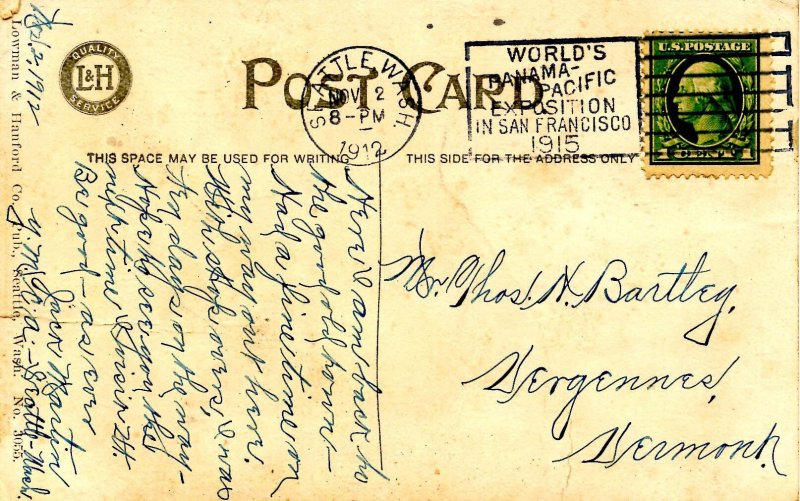 QUALITY
L&H
SERVICE
POST CARD
SEATTLE, WASH.
NOV 2
8-PM
1912
WORLD'S
PANAMA-
PACIFIC
EXPOSITION
IN SAN FRANCISCO
1915
U.S. POSTAGE
1 CENT 1
THIS SPACE MAY BE USED FOR WRITING
THIS SIDE FOR THE ADDRESS ONLY
Mr. Thos. N. Bartley,
Vergennes,
Vermont.
Here I am back to
the good old town -
Had a fine time on
my way out here.
With stopovers, I was
ten days on the way -
Hope to see you the
next time I visit
Be good - as ever
Jack
Y.M.C.A. - Seattle - Wash.
2 1912
Lowman & Hanford Co. Pub., Seattle, Wash. No. 3055